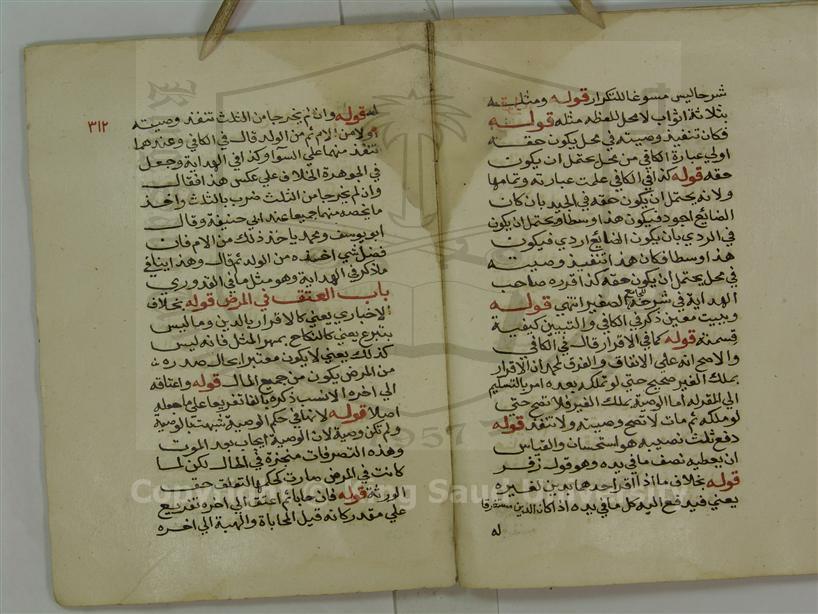 شرحا ليس مسوغا للتكرار قوله ومثله سقيه
بثلاثة اثواب لا محل للفظه مثله قوله
فكان تنفيذ وصيته في محل يكون حقه
اولي عبارة الكافي من محل يحتمل ان يكون
حقه قوله كذا في الكافي علمت عبارته وتمامها
ولانه يحتمل ان يكون حقه في الجيد بان كان
الضائع اجود فيكون هذا وسطا ويحتمل ان يكون
في الردي بان يكون الضائع اردي فيكون
هذا وسطا فكان هذا تنفيذ وصيته
في محل يحتمل ان يكون حقه كذا قرره صاحب
الهداية في شرحه الجامع الصغير انتهي قوله
وببيت معين ذكر في الكافي والتبيين كيفية
قسمته قوله كما في الاقرار قال في الكافي
والاصح انه علي الاتفاق والفرق لمحمد ان الاقرار
بملك الغير صحيح حتي لو تملكه بعده امر بالتسليم
الي المقر له اما الوصية بملك الغير فلا تصح حتي
لو ملكه ثم مات لا تصح وصيته ولا تنفذ قوله
دفع ثلث نصيبه هو استحسان والقياس
ان يعطيه نصف ما في يده وهو قول زفر
قوله بخلاف ما اذا اقر احدهما بدين لغيره
يعني فيدفع اليه كل ما في يده اذا كان الدين مستغرقا
له
٣١٢
له قوله وان لم يخرجا من الثلث تنفذ وصيته
اولا من الام ثم من الولد قال في الكافي وعندهما
تنفذ منهما علي السوا وكذا في الهداية وجعل
في الجوهرة الخلاف علي عكس هذا فقال
وان لم يخرجا من الثلث ضرب بالثلث واخذ
ما يخصه منهما جميعا عند ابي حنيفة وقال
ابو يوسف ومحمد ياخذ ذلك من الام فان
فضل شي اخذه من الولد ثم قال وهذا ينافي
ما ذكر في الهداية وهو مثل ما في القدوري
باب العتق في المرض قوله بخلاف
الاخباري يعني كالاقرار بالدين وما ليس
بتبرع يعني كالنكاح بمهر المثل فانه ليس
كذلك يعني لا يكون معتبرا بحال صدوره
من المرض يكون من جميع المال قوله واعتاقه
الي اخره الانسب ذكره بالفا تفريعا علي ما جعله
اصلا قوله لانها في حكم الوصية شبهت بالوصية
ولم تكن وصية لان الوصية ايجاب بعد الموت
وهذه التصرفات منجزة في الحال لكن لما
كانت في المرض صارت كحكمها لتعلق حق
الورثة قوله فان حابا ثم اعتق الي اخره تفريع
علي مقدر كانه قيل المحاباة والهبة الي اخره